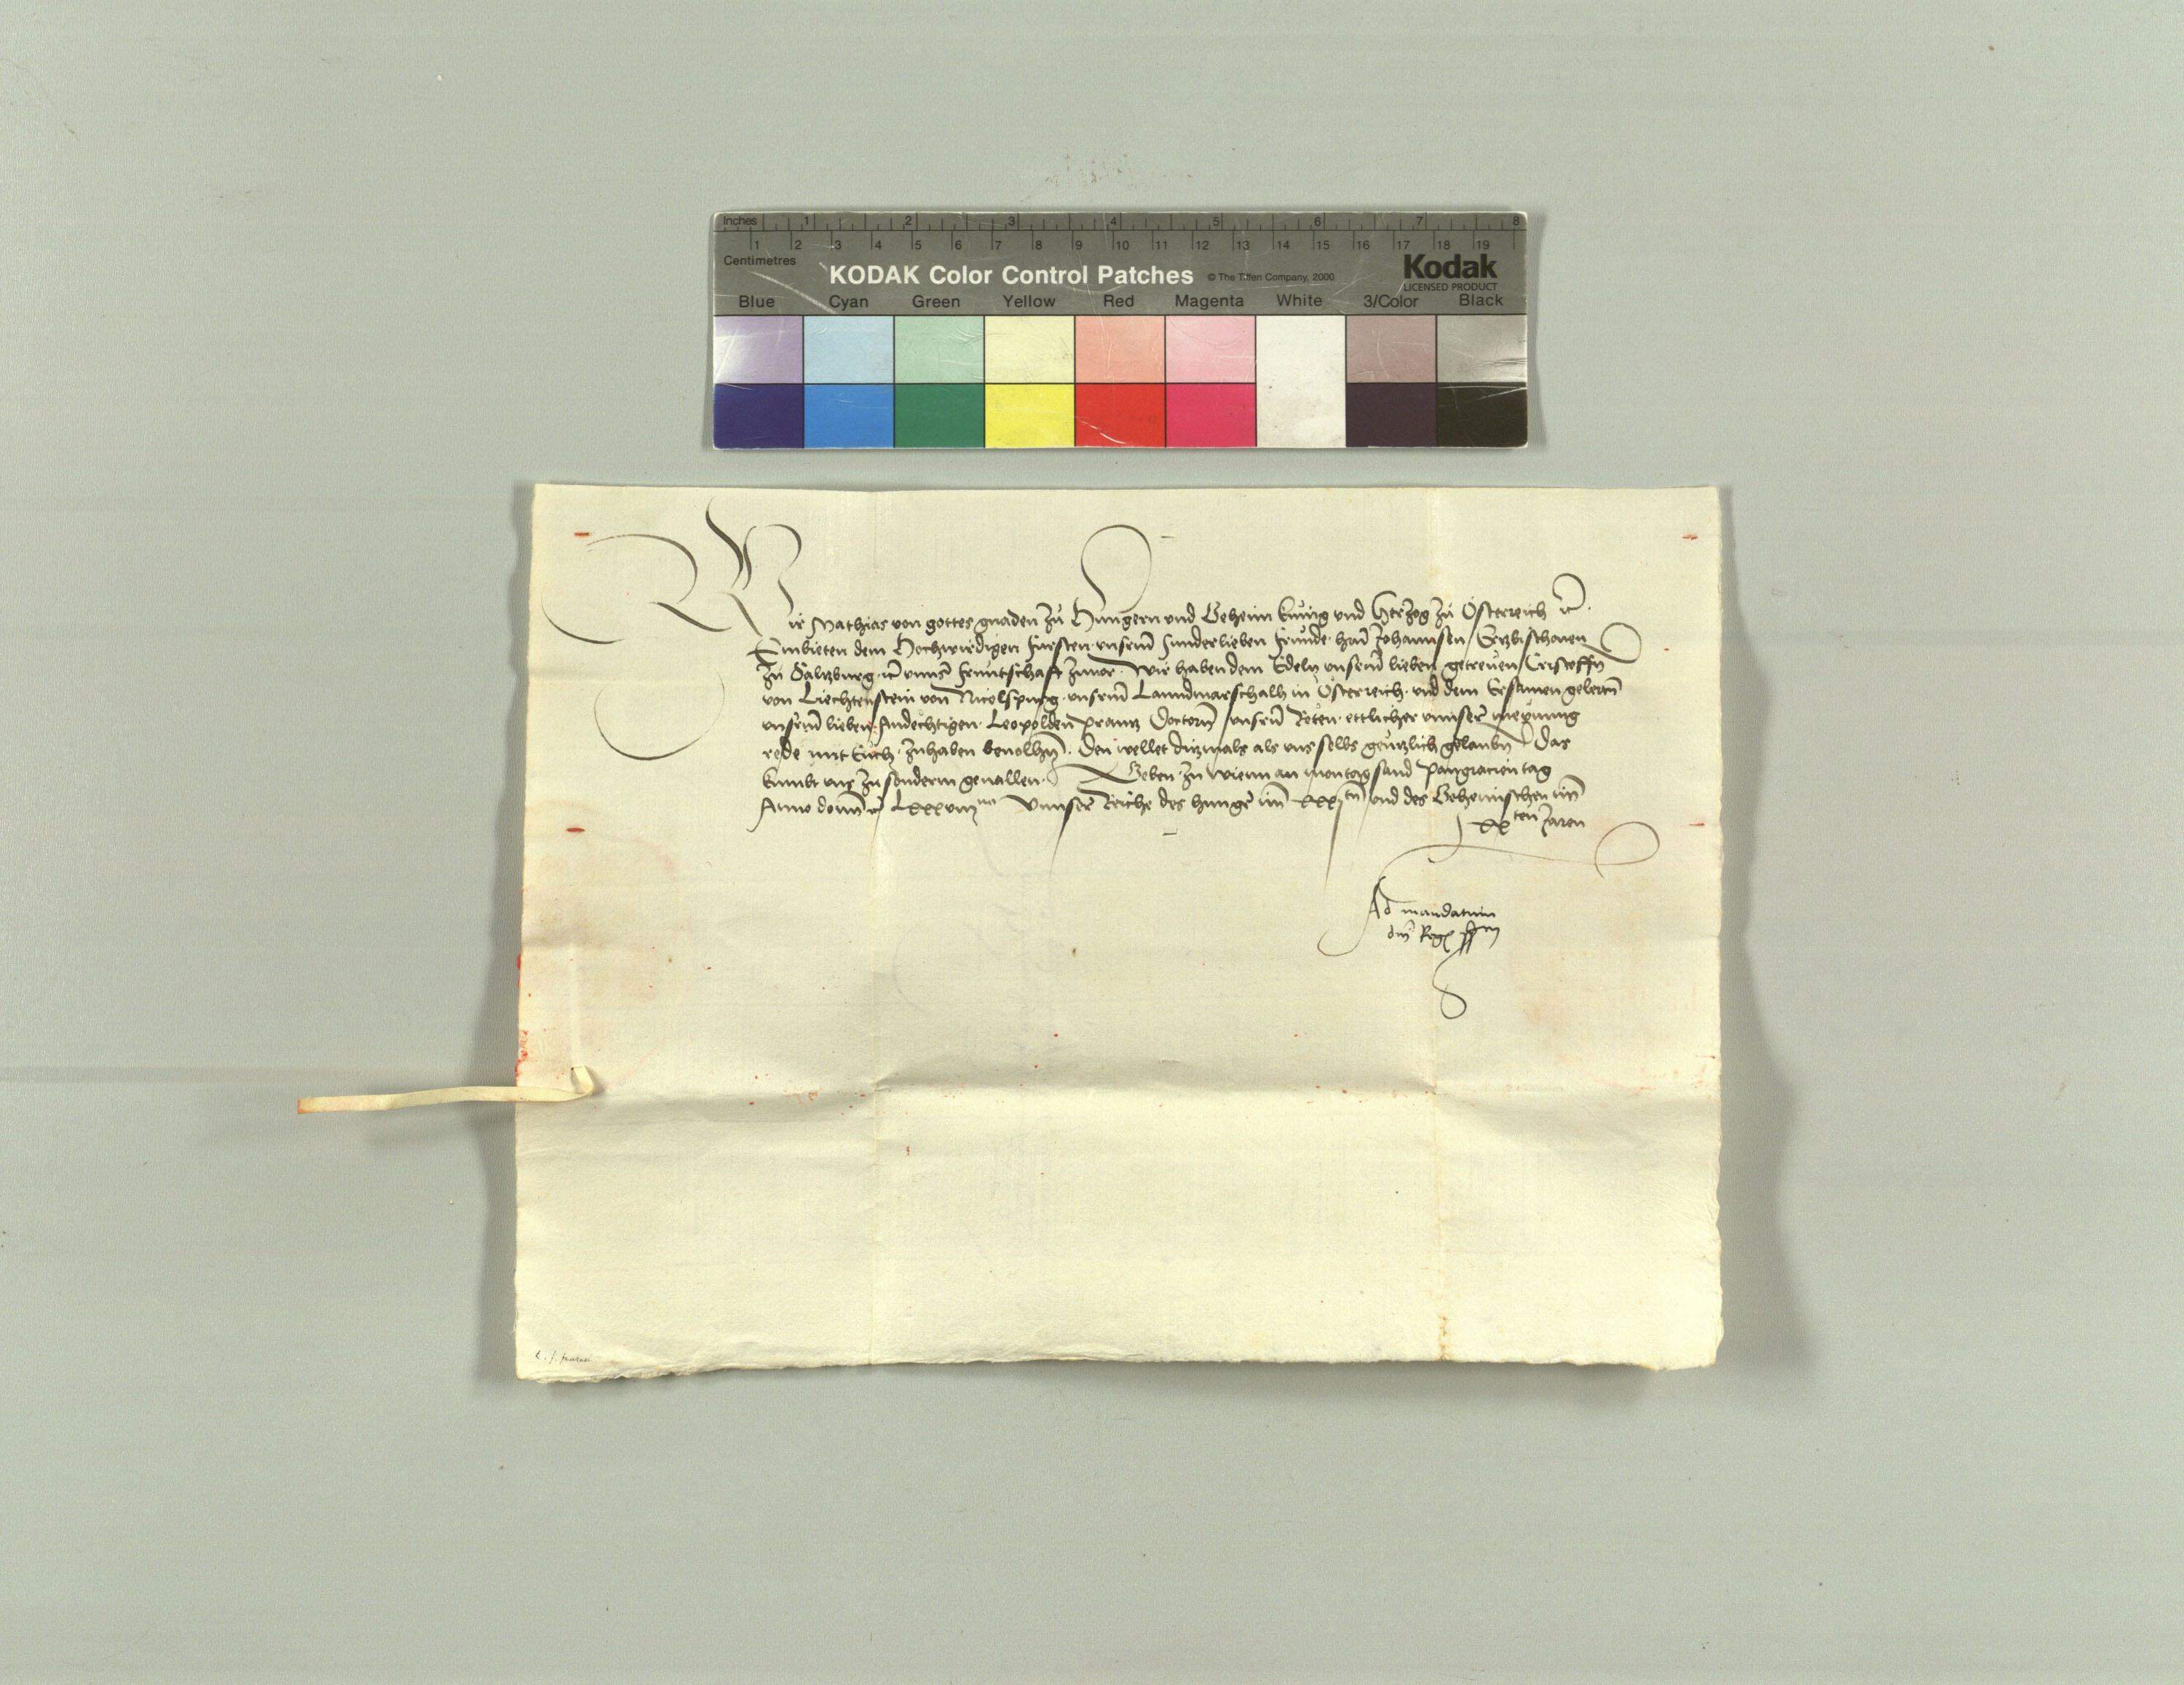 Inches 1 2 3 4 5 6 7 8
1 2 3 4 5 6 7 8 9 10 11 12 13 14 15 16 17 18 19
Centimetres
KODAK Color Control Patches © The Tiffen Company, 2000 Kodak
LICENSED PRODUCT
Blue Cyan Green Yellow Red Magenta White 3/Color Black
Wir Mathias von gottes gnaden zů Hungern und Beheim kunig und Hertzog zů Osterreich
Embieten dem Hochwirdigen fursten unserm sunderlieben frunde hern Johannsen Ertzbischouen
zů Saltzburg unnser fruntschaft zuuor. Wir haben dem Edeln unserm lieben getreuen Cristoffn
von Liechtenstein von Nicolspurg unserm Lanndmarschalh in Osterreich und dem Ersamen gelertn
unserm lieben Andechtigen Leopolden prantz Doctorn unsern Reten ettlicher unnser meynung
rede mit Euch zuhaben beuolhn. Den wellet ditzmals als uns selbs gentzlich gelaubn Das
kumbt uns zu sonderm geuallen. Geben zu Wienn an montag sand pangracien tag
Anno domini Lxxxviii Unnser Reiche des hunger im xxxi und des Behemischen im
xx ten Jaren
Ad mandatum
dni Regis